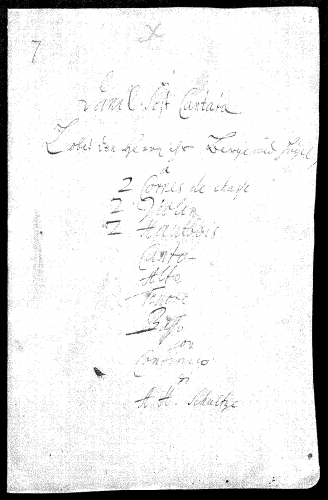 7
Cantata
Lobet den Herrn ihr Berge und Hügel
a
2 Cornes de chasse
2 Violin
2 Hautbois
Canto
Alto
Tenore
Basso
con
Continuo
di
A. H. Schultze